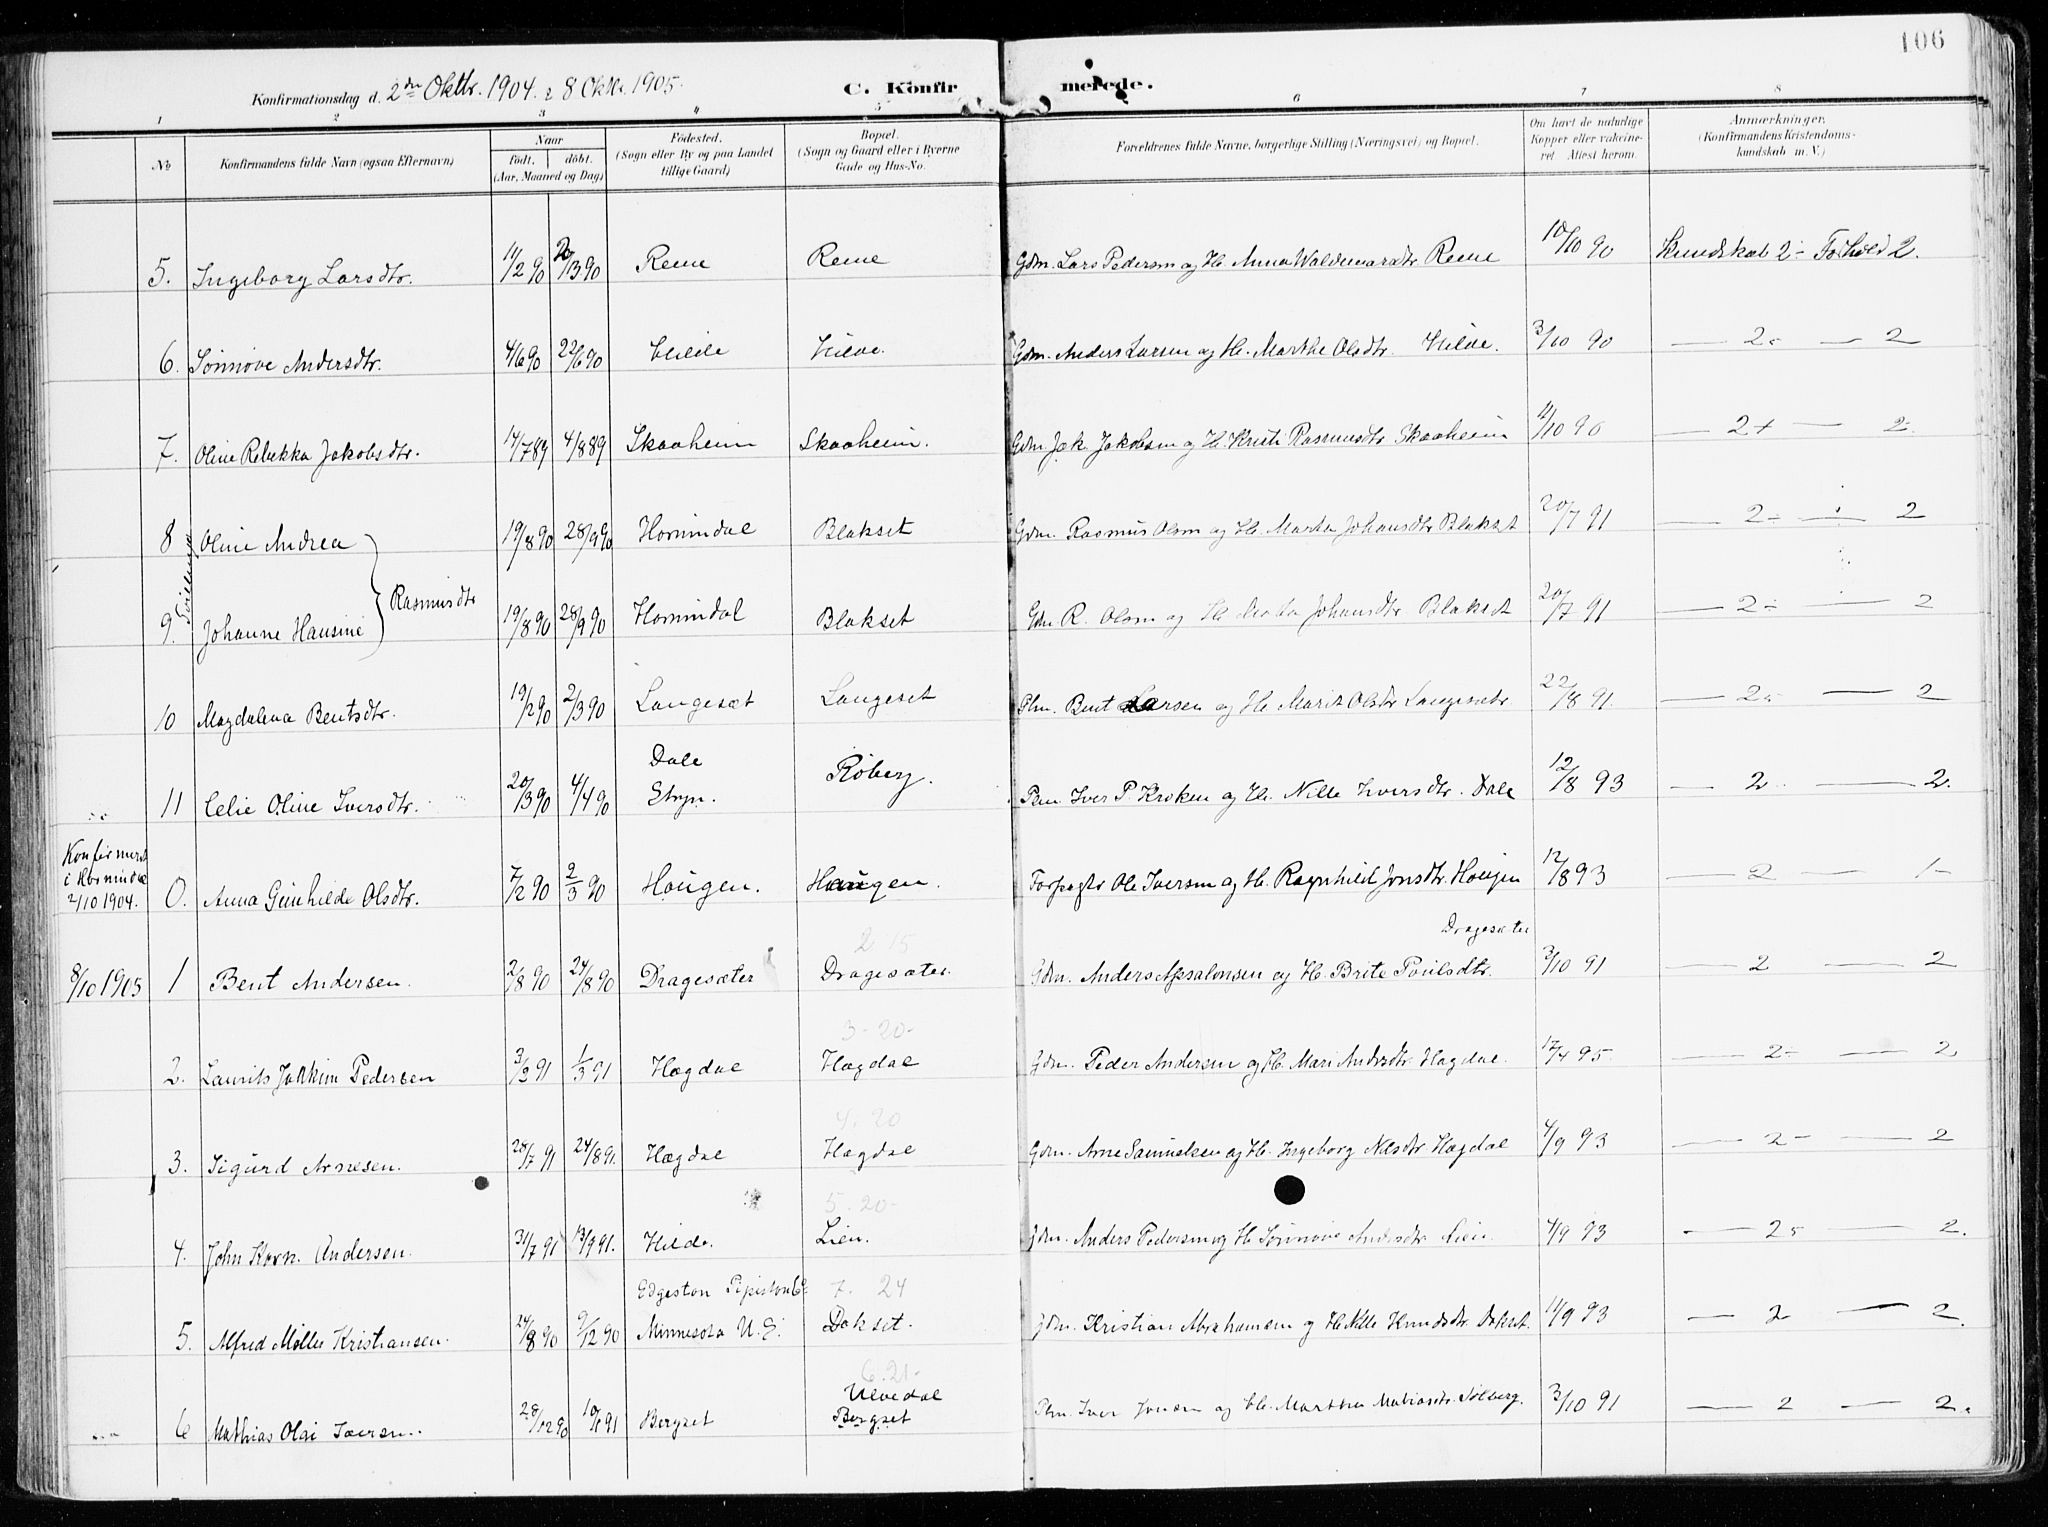 106
Konfirmationsdag d. 2den Oktbr. 1904. & 8 Oktr. 1905.
C. Konfirmerede.
1 2 3 4 5 6 7 8
No Konfirmandens fulde Navn (ogsaa Efternavn)
Naar født. døbt. (Aar, Maaned og Dag)
Fødested. (Sogn eller By og paa Landet tillige Gaard)
Bopæl. (Sogn og Gaard eller i Byerne Gade og Hus-No.
Forældrenes fulde Navne, borgerlige Stilling (Næringsvei) og Bopæl.
Om havt de naturlige Kopper eller vakcineret Attest herom.
Anmærkninger. (Konfirmandens Kristendomskundskab m. V.)
5. Ingeborg Larsdtr. 11/2 90 20/3 90 Reme Reme Gdm. Lars Pedersen og H. Anna Waldemarsdtr Reme 10/10 90 Kundskab 2- Forhold 2.
6. Sønnøve Andersdtr. 4/6 90 22/6 90 Hilde Hilde. Gdm. Anders Larsen og H. Marthe Olsdtr. Hilde. 3/10 90 — 2- — 2
7. Oline Rebekka Jakobsdtr. 14/7 89 4/8 89 Skaaheim Skaaheim. Gdm. Jak. Jakobsen og H. Kristi Rasmusdtr Skaaheim 11/10 90 — 2+ — 2-
8 Oline Andrea 19/8 90 28/9 90 Hornindal Blakset Gdm. Rasmus Olsen og H. Marta Johansdtr Blakset 20/7 91 — 2- — 2
Tvillinger
Rasmusdtr
9. Johanne Hansine 19/8 90 28/9 90 Hornindal Blakset Gdm R. Olsen og H. Marta Johansdtr Blakset 20/7 91 — 2- — 2
10 Magdalena Bentsdtr. 19/2 90 2/3 90 Langesæt Langeset Plm. Bent Larsen og H. Marit Olsdtr Langesætr 22/8 91. — 2- — 2
11 Celie Oline Iversdtr. 20/3 90 4/4 90 Dale Stryn. Roberg. Plm Iver P Kroken og H. Nille Iversdtr. Dale 12/8 93 — 2 — 2.
Konfirmert i Hornindal 2/10 1904. 0. Anna Gunhilde Olsdtr. 7/2 90 2/3 90 Haugen. Haugen. Forpagtr Ole Iversen og H. Ragnhild Jonsdtr. Haugen 12/8 93 — 2 — 1-
2 15
8/10 1905 1 Bent Andersen. 2/8 90 24/8 90 Dragesæter Dragesæter. Gdm. Anders Absalonsen og H. Brite Poulsdtr. Dragesæter 3/10 91 — 2 — 2
3-20-
2. Laurits Joakim Pedersen 3/2 91 1/3 91 Hægdal Hægdal Gdm. Peder Andersen og H. Mari Andersdtr Hagdal. 17/4 95. — 2- — 2
4. 20
3. Sigurd Arnesen. 28/7 91 24/8 91. Hægdal Hægdal Gdm. Arne Samuelsen og H. Ingeborg Nilsdtr Hægdal 4/9 93 — 2- — 2
5. 20-
4. John Korn. Andersen. 31/7 91 13/9 91. Hilde. Lien. Gdm. Anders Pedersen og H. Sønnøve Andersdtr Lien 4/9 93 — 2- — 2.
7. 24
5. Alfred Møller Kristiansen. 24/8 90 9/12 90 Edgeston Pipiston Co Minnesota U.S. Dokset. Gdm. Kristian Abrahamsen og H. Nille Knudsdtr. Dokset. 11/9 93 — 2 — 2.
6. 21-
6 Mathias Olai Iversen. 28/12 90 10/1 91 Bergset Ulvedal Bergset Plm. Iver Jonsen og H. Marthea Mathiasdtr. Solberg. 3/10 91 — 2 — 2.